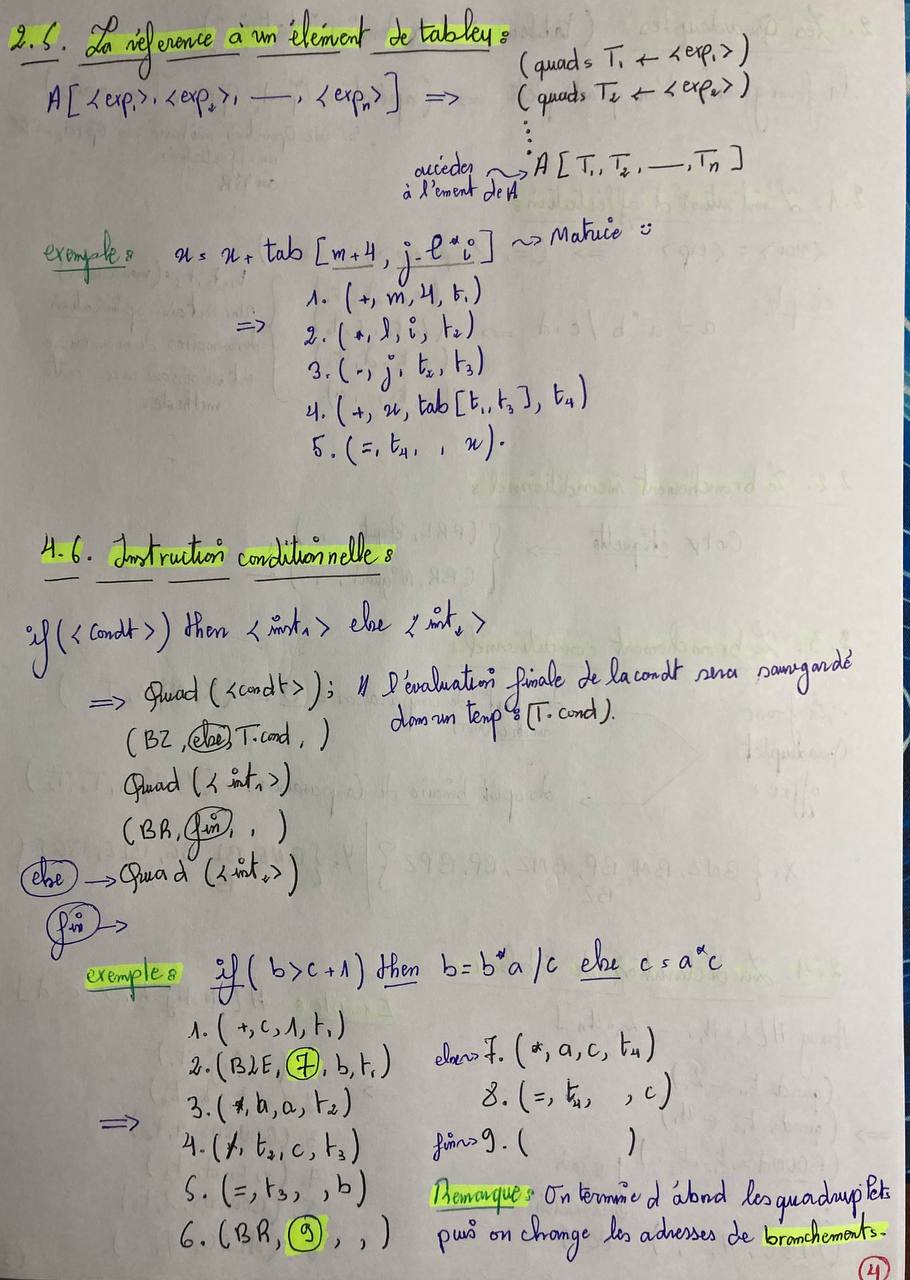 2.5. La réference à un élément de tableu :
A[<exp₁>, <exp₂>, —, <expₙ>] => (quads T₁ ← <exp₁>)
(quads T₂ ← <exp₂>)
⋮
accéder à l'ement de A ⇝ A[T₁, T₂, —, Tₙ]
exemple : x = x + tab [m+4, j-l*i] ⇝ Matrice ü
=> 1. (+, m, 4, t₁)
2. (*, l, i, t₂)
3. (-, j, t₂, t₃)
4. (+, x, tab[t₁, t₃], t₄)
5. (=, t₄, , x).
4.6. Instruction conditionnelle :
if(<condt>) then <inst₁> else <inst₂>
=> Quad (<condt>); // l'évaluation finale de la condt sera sauvegardé
dans un temp : (T.cond).
(BZ, else, T.cond, )
Quad (<inst₁>)
(BR, fin, , )
else → Quad (<inst₂>)
fin →
exemple : if (b>c+1) then b=b*a/c else c=a*c
=> 1. (+, c, 1, t₁)
2. (BLE, 7, b, t₁)
3. (*, b, a, t₂)
4. (/, t₂, c, t₃)
5. (=, t₃, , b)
6. (BR, 9, , )
else⇝7. (*, a, c, t₄)
8. (=, t₄, , c)
fin⇝9. ( )
Remarque : On termine d'abord les quadruplets
puis on change les adresses de branchements.
4